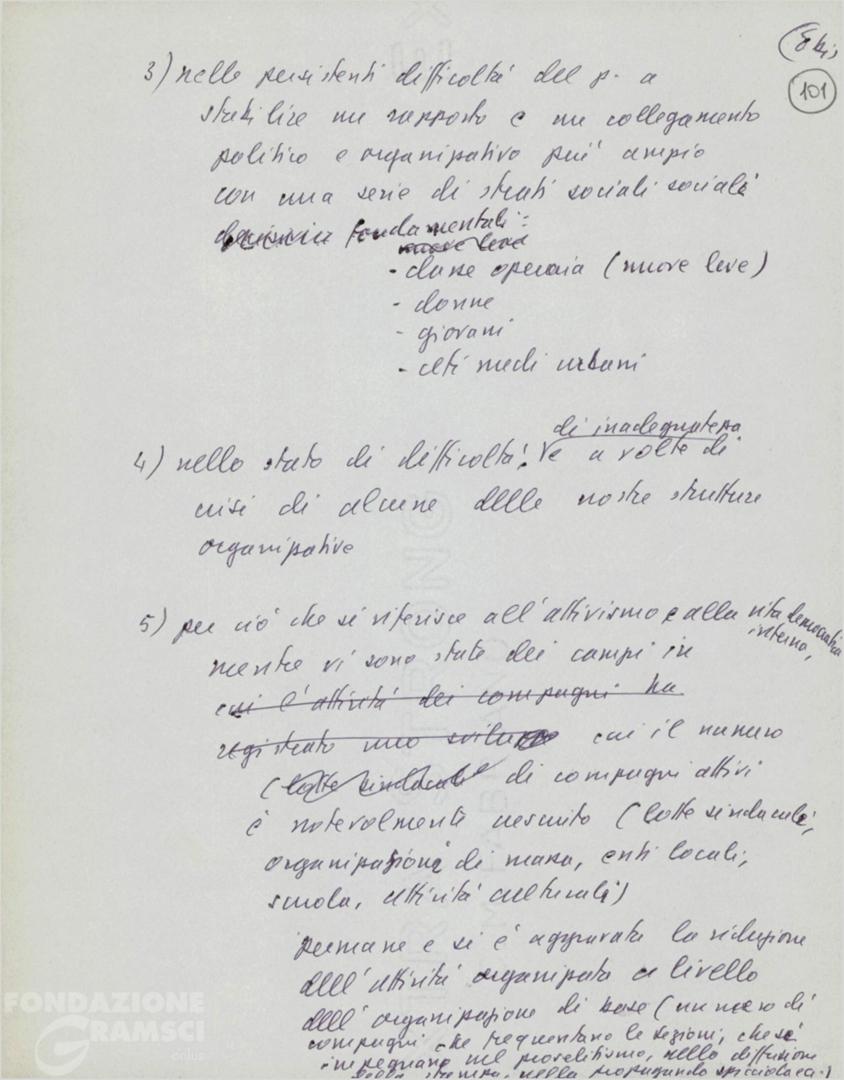 101
3) nelle persistenti difficoltà del p. a
stabilire un rapporto e un collegamento
politico e organizzativo più ampio
con una serie di strati sociali sociali
fondamentali:
nuove leve
- classe operaia (nuove leve)
- donne
- giovani
- ceti medi urbani
di inadeguatezza
4) nello stato di difficoltà, e a volte di
crisi di alcune delle nostre strutture
organizzative
5) per ciò che si riferisce all'attivismo e alla vita democratica
interna,
mentre vi sono stati dei campi in
cui l'attività dei compagni ha
registrato uno sviluppo cui il numero
(lotte sindacali di compagni attivi
è notevolmente cresciuto (lotte sindacali,
organizzazioni di massa, enti locali,
scuola, attività culturali)
permane e si è aggravata la riduzione
dell'attività organizzata a livello
dell'organizzazione di base (numero di
compagni che frequentano le sezioni, che si
impegnano nel proselitismo, nella diffusione
della stampa, nella propaganda spicciola ecc.)
FONDAZIONE
GRAMSCI
onlus